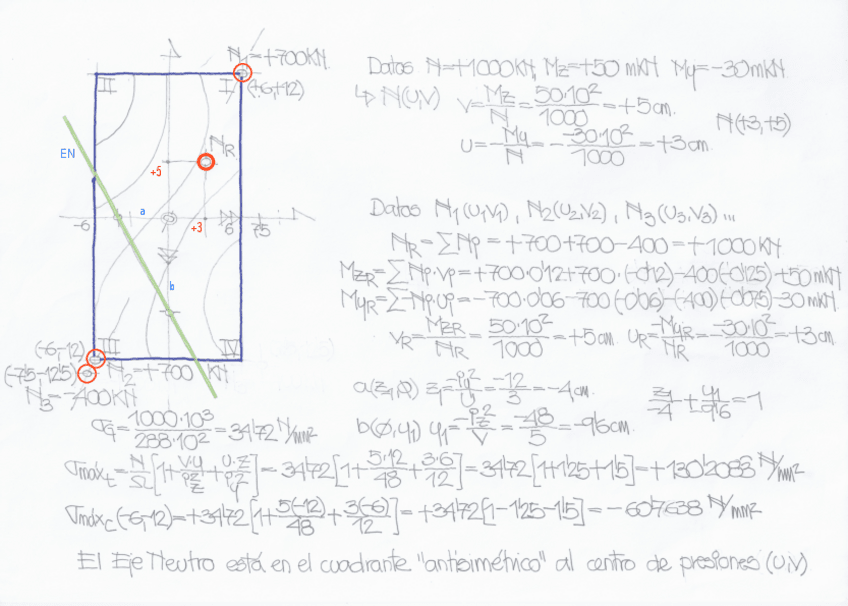 N₁=+700KN
II
I
(+6,+12)
EN
NR
+5
a
-6
+3
6
7'5
b
(-6,-12)
III
IV
(-7'5-12'5)
N₂=+700 KN
N₃=-400KN
Datos N=+1000KN, Mz=+50 mKN My=-30mKN
↳ N(U,V) V=Mz/N=50·10²/1000=+5cm.
N(+3,+5)
U=-My/N=-(-30·10²)/1000=+3cm
Datos N₁(U₁V₁), N₂(U₂,V₂), N₃(U₃,V₃)...
NR=∑Np=+700+700-400=+1000KN
MzR=∑Np·Vp=+700·0'12+700·(-0'12)-400(-0'125)=+50mKN
MyR=∑-Np·Up=-700·0'06-700(-0'06)-(-400)(-0'075)=-30mKN
VR=MzR/NR=50·10²/1000=+5cm UR=-MyR/NR=-(-30·10²)/1000=+3cm
a(z₁,0) z₁=-iy²/U=-12/3=-4cm.
z₁/-4+y₁/-9'6=1
b(0,y₁) y₁=-iz²/V=-48/5=-9'6cm.
σG=1000·10³/288·10²=34'72 N/mm²
σmáxt=N/Ω[1+V·y/iz²+U·z/iy²]=34'72[1+5·12/48+3·6/12]=34'72[1+1'25+1'5]=+130'2083 N/mm²
σmáxc(-6,-12)=+34'72[1+5(-12)/48+3(-6)/12]=+34'72[1-1'25-1'5]=-60'7638 N/mm²
El Eje Neutro está en el cuadrante "antisimétrico" al centro de presiones (U,V)